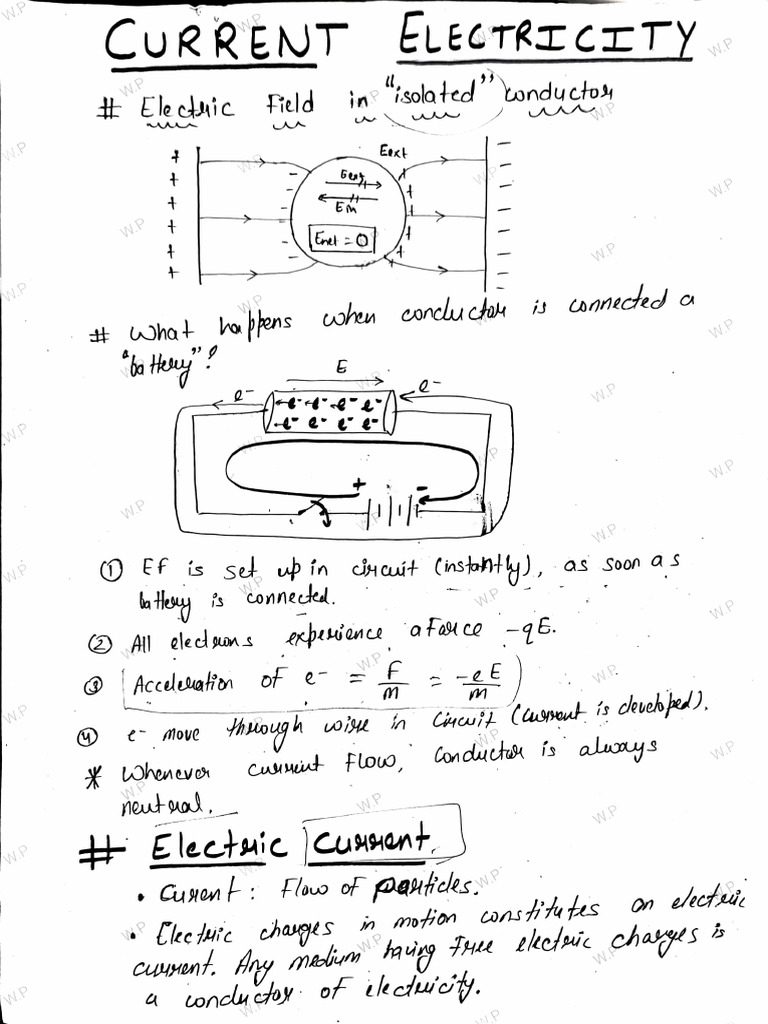 CURRENT ELECTRICITY
# Electric Field in "isolated" conductor
Eext
Eext
Em
Enet = 0
# What happens when conductor is connected a
"battery"?
E
e⁻ e⁻
e⁻ e⁻ e⁻ e⁻
e⁻ e⁻ e⁻ e⁻
+ -
① Ef is set up in circuit (instantly), as soon as
battery is connected.
② All electrons experience a Force -qE.
③ Acceleration of e⁻ = F/m = -eE/m
④ e⁻ move through wire in circuit (current is developed).
* Whenever current flow, conductor is always
neutral.
# Electric Current.
• Curent: Flow of particles.
• Electric charges in motion constitutes an electric
current. Any medium having free electric charges is
a conductor of electricity.
W.P